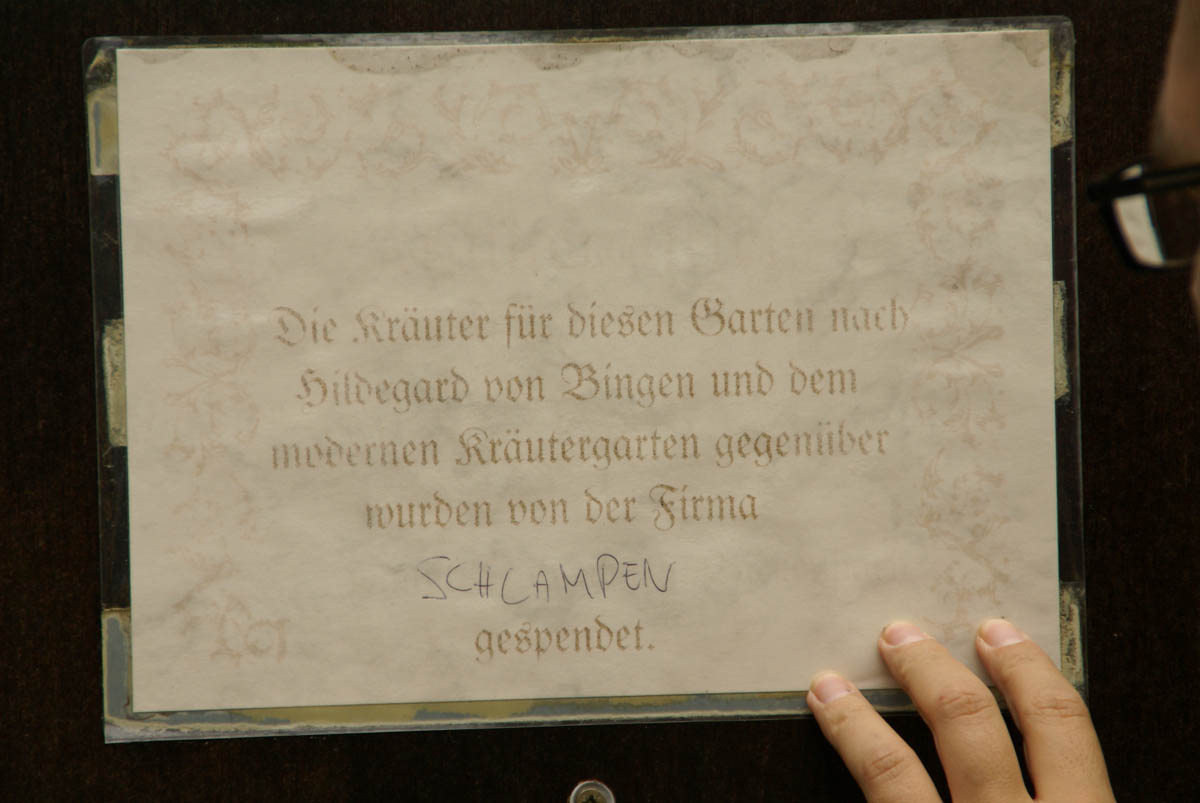 Die Kräuter für diesen Garten nach
Hildegard von Bingen und dem
modernen Kräutergarten gegenüber
wurden von der Firma
SCHLAMPEN
gespendet.